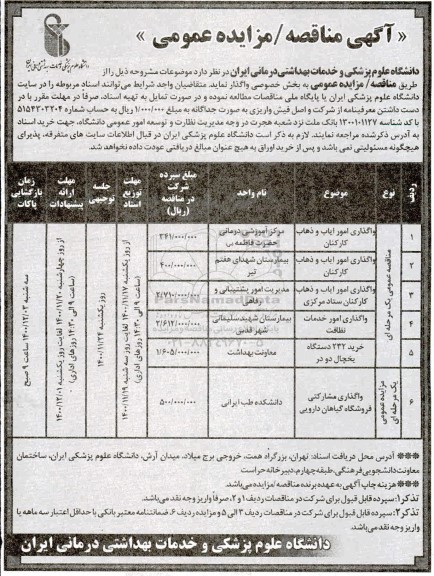 « آگهی مناقصه / مزایده عمومی »
دانشگاه علوم پزشکی و خدمات بهداشتی درمانی ایران در نظر دارد موضوعات مشروحه ذیل را از
طریق مناقصه / مزایده عمومی به بخش خصوصی واگذار نماید. متقاضیان واجد شرایط می‌توانند اسناد مربوطه را در سایت
دانشگاه علوم پزشکی ایران یا پایگاه ملی مناقصات مطالعه نموده و در صورت تمایل به تهیه اسناد، صرفا در مهلت مقرر با در
دست داشتن معرفینامه از شرکت و اصل فیش واریزی به صورت جداگانه به مبلغ ۱/۰۰۰/۰۰۰ ریال به حساب شماره ۵۱۵۴۳۰۳۲۰۴
با کد شناسه ۱۳۰۰۱۰۱۱۲۷ بانک ملت نزد شعبه هجرت در وجه مدیریت نظارت و توسعه امور عمومی دانشگاه، جهت خرید اسناد
به آدرس ذکر شده مراجعه نمایند. لازم به ذکر است دانشگاه علوم پزشکی ایران در قبال اطلاعات سایت های متفرقه، پذیرای
هیچگونه مسئولیتی نمی باشد و پس از خرید اوراق به هیچ عنوان مبالغ دریافتی عودت داده نخواهد شد.
ردیف نوع موضوع نام واحد مبلغ سپرده شرکت در مناقصه (ریال) مهلت توزیع اسناد جلسه توجیهی مهلت ارائه پیشنهادات زمان بازگشایی پاکات
۱ واگذاری امور ایاب و ذهاب کارکنان مرکز آموزشی درمانی حضرت فاطمه س ۳۶۱/۰۰۰/۰۰۰
۲ واگذاری امور ایاب و ذهاب کارکنان بیمارستان شهدای هفتم تیر ۴۰۰/۰۰۰/۰۰۰
۳ واگذاری امور ایاب و ذهاب کارکنان ستاد مرکزی مدیریت امور پشتیبانی و رفاهی ۲/۷۱۰/۰۰۰/۰۰۰
۴ واگذاری امور خدمات نظافت بیمارستان شهید سلیمانی شهر قدس ۲/۶۱۲/۰۰۰/۰۰۰
۵ خرید ۲۳۲ دستگاه یخچال دو در معاونت بهداشت ۱/۶۰۵/۰۰۰/۰۰۰
۶ واگذاری مشارکتی فروشگاه گیاهان دارویی دانشکده طب ایرانی ۵۰۰/۰۰۰/۰۰۰
مناقصه عمومی یک مرحله ای
مزایده عمومی یک مرحله ای
از روز یکشنبه ۱۴۰۰/۱۱/۱۷ لغایت روز سه شنبه ۱۴۰۰/۱۱/۱۹ (ساعت ۹:۰۰ الی ۱۴:۳۰ روزهای اداری)
روز یکشنبه ۱۴۰۰/۱۱/۲۴
از روز چهارشنبه ۱۴۰۰/۱۱/۲۰ لغایت روز یکشنبه ۱۴۰۰/۱۲/۰۱ (ساعت ۹:۰۰ الی ۱۴:۳۰ روزهای اداری)
سه شنبه ۱۴۰۰/۱۲/۰۳ ساعت ۹ صبح
ParsNamadData
۰۲۱-۸۸۳۴۹۶۷۰-۵
*** آدرس محل دریافت اسناد: تهران، بزرگراه همت، خروجی برج میلاد، میدان آرش، دانشگاه علوم پزشکی ایران، ساختمان
معاونت دانشجویی فرهنگی، طبقه چهارم، دبیرخانه حراست
*** هزینه چاپ آگهی به عهده برنده مناقصه / مزایده می‌باشد.
تذکر۱: سپرده قابل قبول برای شرکت در مناقصات ردیف ۱ و ۲، صرفاً واریز وجه نقد می‌باشد.
تذکر۲: سپرده قابل قبول برای شرکت در مناقصات ردیف ۳ الی ۵ و مزایده ردیف ۶، ضمانتنامه معتبر بانکی با حداقل اعتبار سه ماهه یا
واریز وجه نقد می‌باشد.
دانشگاه علوم پزشکی و خدمات بهداشتی درمانی ایران